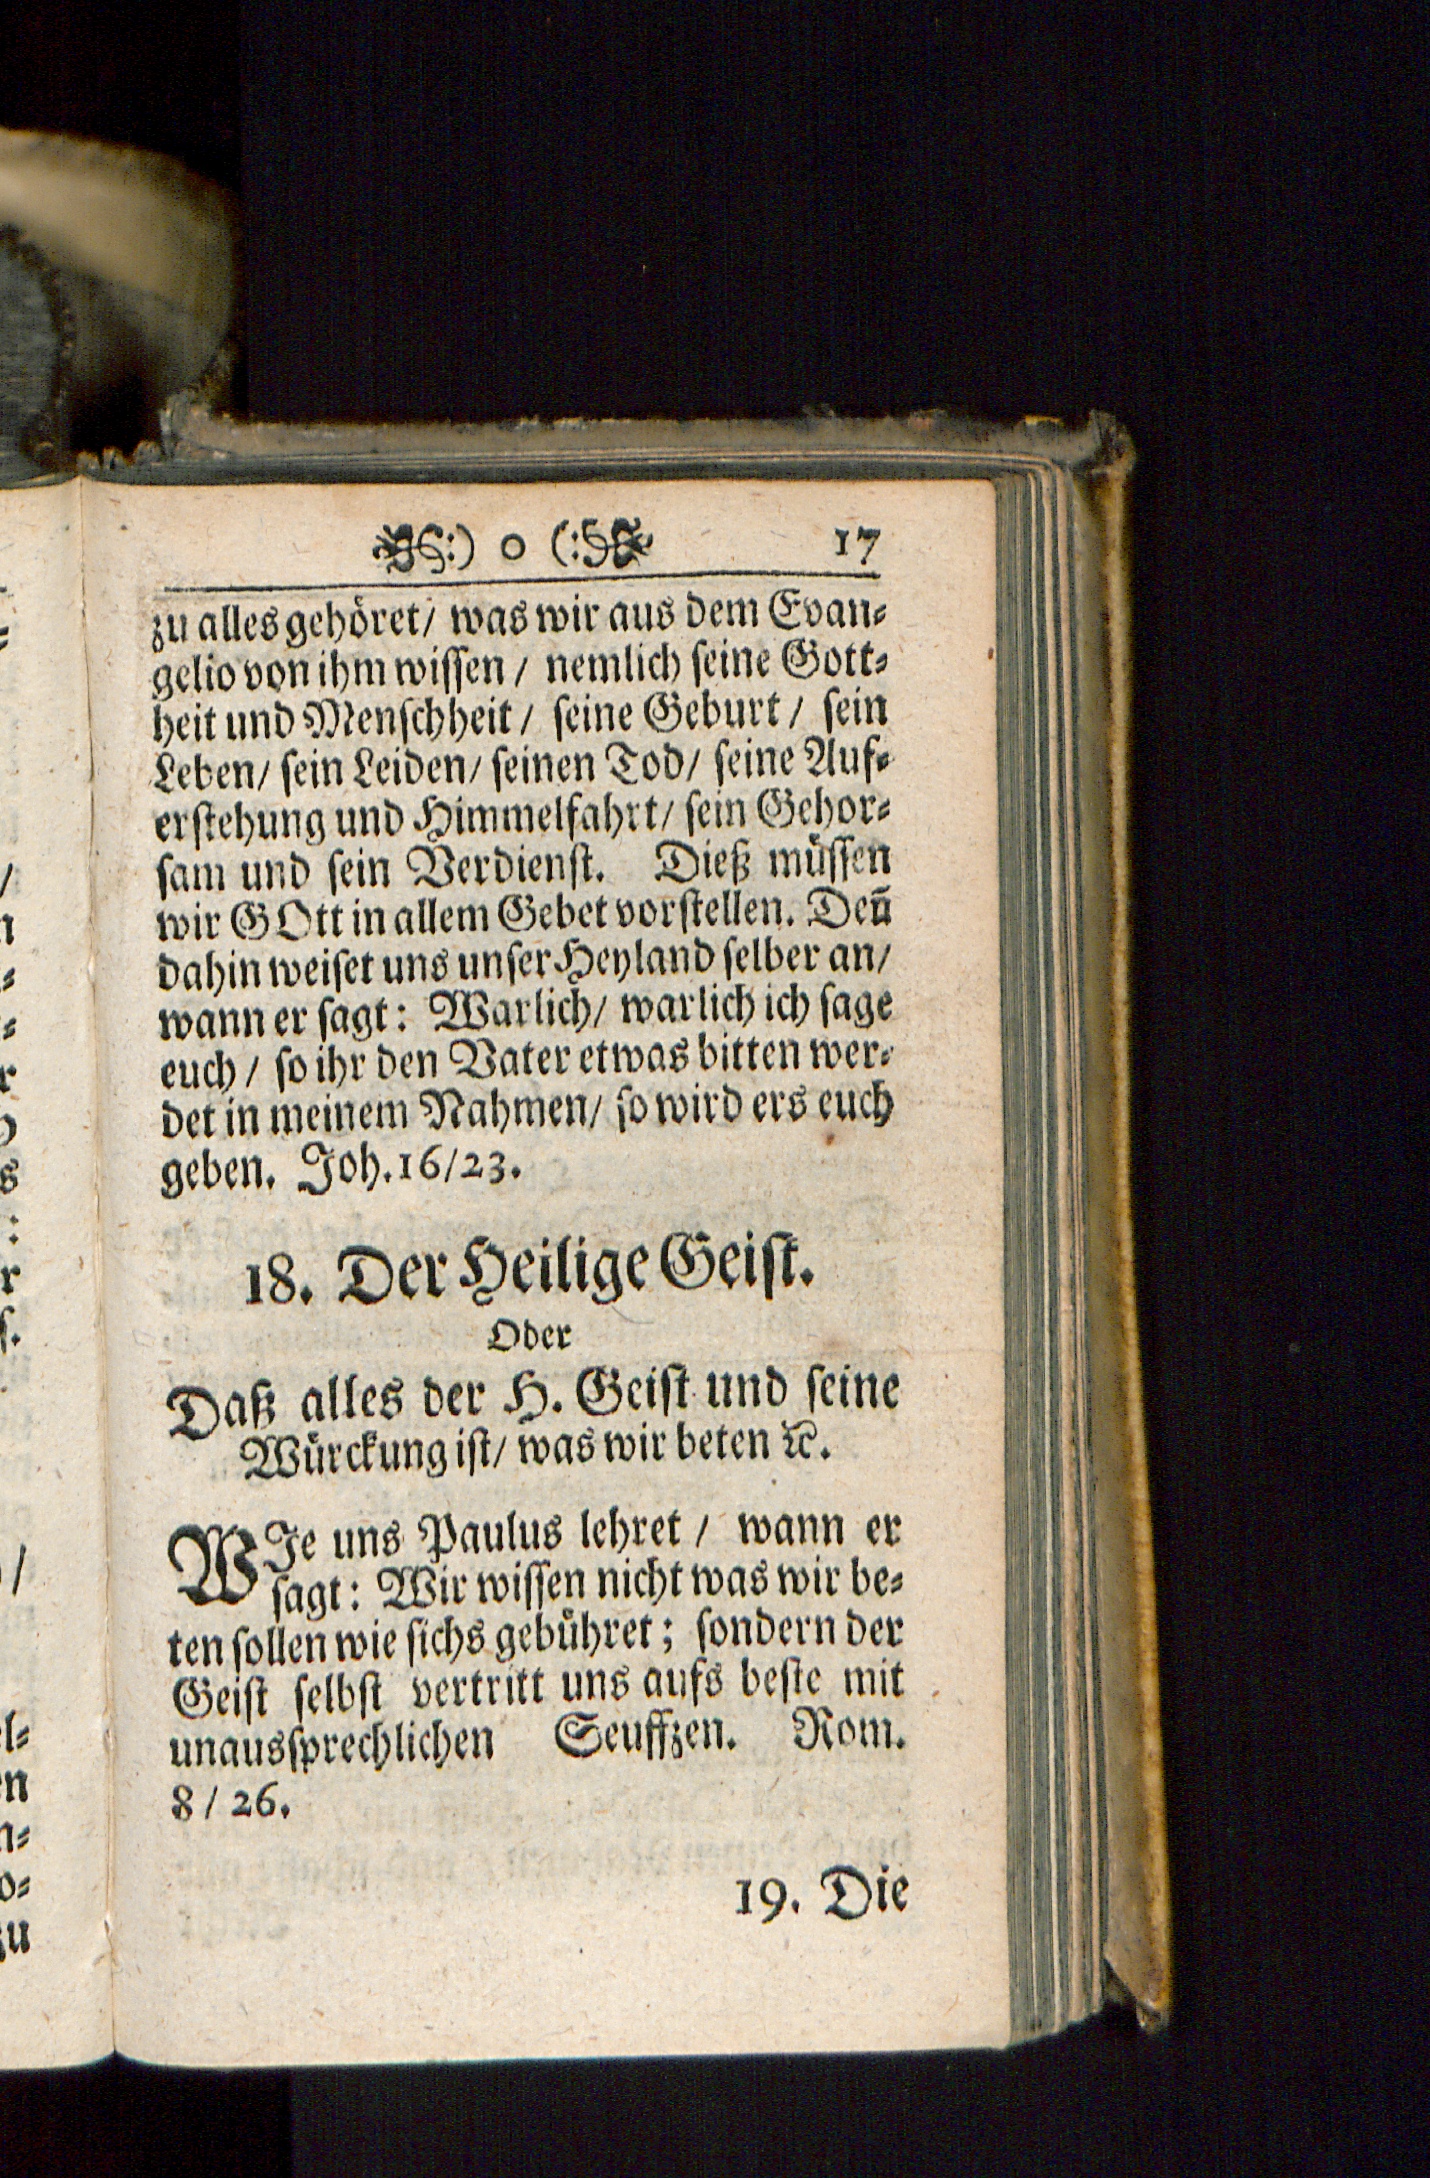 :) o (: 17
zu alles gehöret/ was wir aus dem Evan-
gelio von ihm wissen / nemlich seine Gott-
heit und Menschheit/ seine Geburt / sein
Leben/ sein Leiden/ seinen Tod/ seine Auf-
erstehung und Himmelfahrt/ sein Gehor-
sam und sein Verdienst. Dieß müssen
wir GOtt in allem Gebet vorstellen. Deñ
dahin weiset uns unser Heyland selber an/
wann er sagt: Warlich/ warlich ich sage
euch / so ihr den Vater etwas bitten wer-
det in meinem Nahmen/ so wird ers euch
geben. Joh. 16/23.
18. Der Heilige Geist.
Oder
Daß alles der H. Geist und seine
Würckung ist/ was wir beten ꝛc.
WIe uns Paulus lehret / wann er
sagt: Wir wissen nicht was wir be-
ten sollen wie sichs gebühret; sondern der
Geist selbst vertritt uns aufs beste mit
unaussprechlichen Seuffzen. Rom.
8 / 26.
19. Die